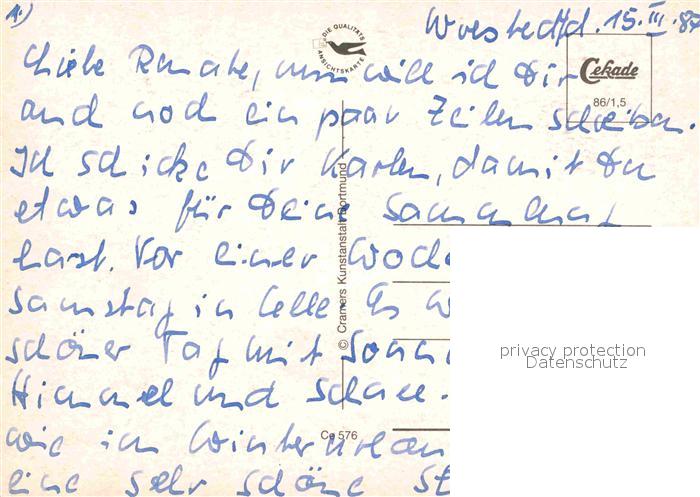 1.)
15. III. 87
DIE QUALITÄTS
ANSICHTSKARTE
Cekade
86/1,5
Liebe Renate, nun will ich Dir
auch noch ein paar Zeilen schreiben.
Ich schicke Dir Karten, damit Du
etwas für Deine Sammlung
hast. Vor einer Woche
Samstag in Celle. Es w
schöner Tag mit Sonn
Himmel und Schnee.
wie im Winterurlau
eine sehr schöne St
© Cramers Kunstanstalt Dortmund
Ce 576
privacy protection
Datenschutz